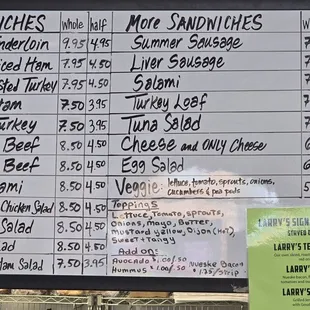 ICHES whole half More SANDWICHES
nderloin 9.95 4.95 Summer Sausage
iced Ham 7.95 4.50 Liver Sausage
sted Turkey 7.95 4.50 Salami
Ham 7.50 3.95 Turkey Loaf
urkey 7.50 3.95 Tuna Salad
Beef 8.50 4.50 Cheese and ONLY Cheese
Beef 8.50 4.50 Egg Salad
ami 8.50 4.50 Veggie: lettuce, tomato, sprouts, onions,
cucumbers & pea pods
Chicken Salad 8.50 4.50 Toppings
Lettuce, Tomato, sprouts,
Salad 8.50 4.50 Onions, Mayo, Butter,
Mustard yellow, Dijon (Hot),
lad 8.50 4.50 Sweet & Tangy
Add on:
am Salad 7.50 3.95 Avocado $1.00/.50 Nueske Bacon
Hummus $1.00/.50 $1.75/STRIP
LARRY'S SIGN
SERVED
LARRY'S TE
LARRY'S
LARRY'S